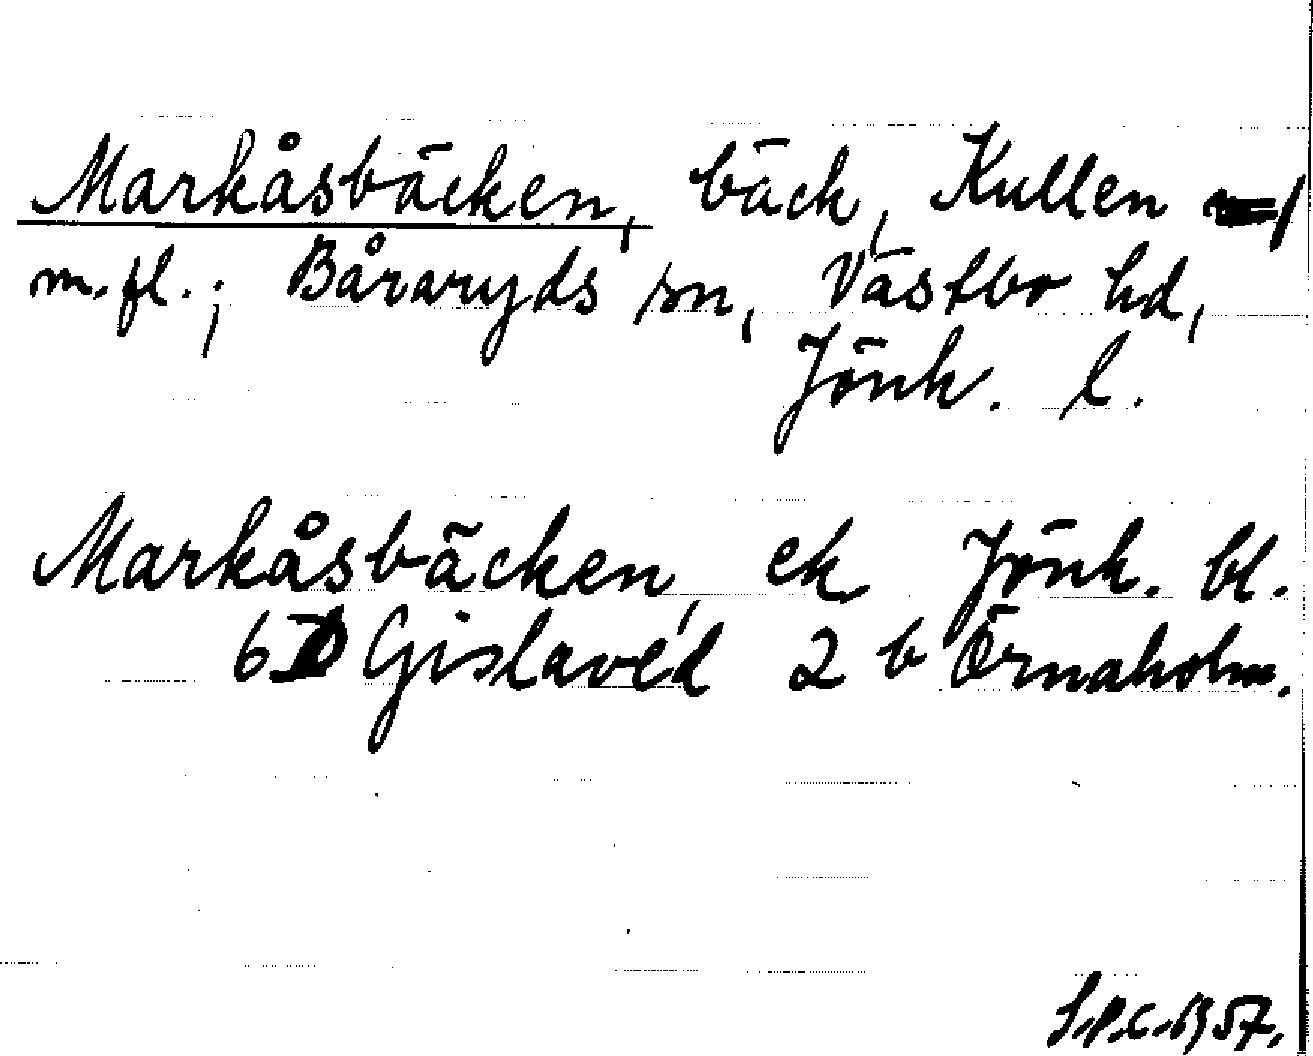 Markåsbäcken, bäck, Kullen
m.fl.; Båraryds sn, Västbo hd,
Jönk. l.
Markåsbäcken, ek Jönk. bl.
6D Gislaved 2 b Örnaholm.
S.P.C. 1957.